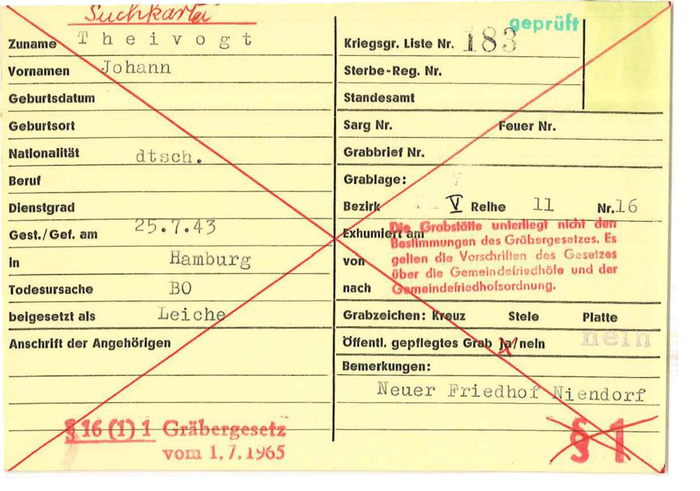 Suchkarte
geprüft
Zuname Theivogt
Vornamen Johann
Geburtsdatum
Geburtsort
Nationalität dtsch.
Beruf
Dienstgrad
Gest./Gef. am 25.7.43
in Hamburg
Todesursache BO
beigesetzt als Leiche
Anschrift der Angehörigen
§ 16 (1) 1 Gräbergesetz
vom 1.7.1965
Kriegsgr. Liste Nr. 183
Sterbe-Reg. Nr.
Standesamt
Sarg Nr. Feuer Nr.
Grabbrief Nr.
Grablage:
Bezirk V Reihe 11 Nr. 16
Exhumiert am
von
nach
Die Grabstätte unterliegt nicht den
Bestimmungen des Gräbergesetzes. Es
gelten die Vorschriften des Gesetzes
über die Gemeindefriedhöfe und der
Gemeindefriedhofsordnung.
Grabzeichen: Kreuz Stele Platte
Öffentl. gepflegtes Grab ja/nein nein
Bemerkungen:
Neuer Friedhof Niendorf
§ 1